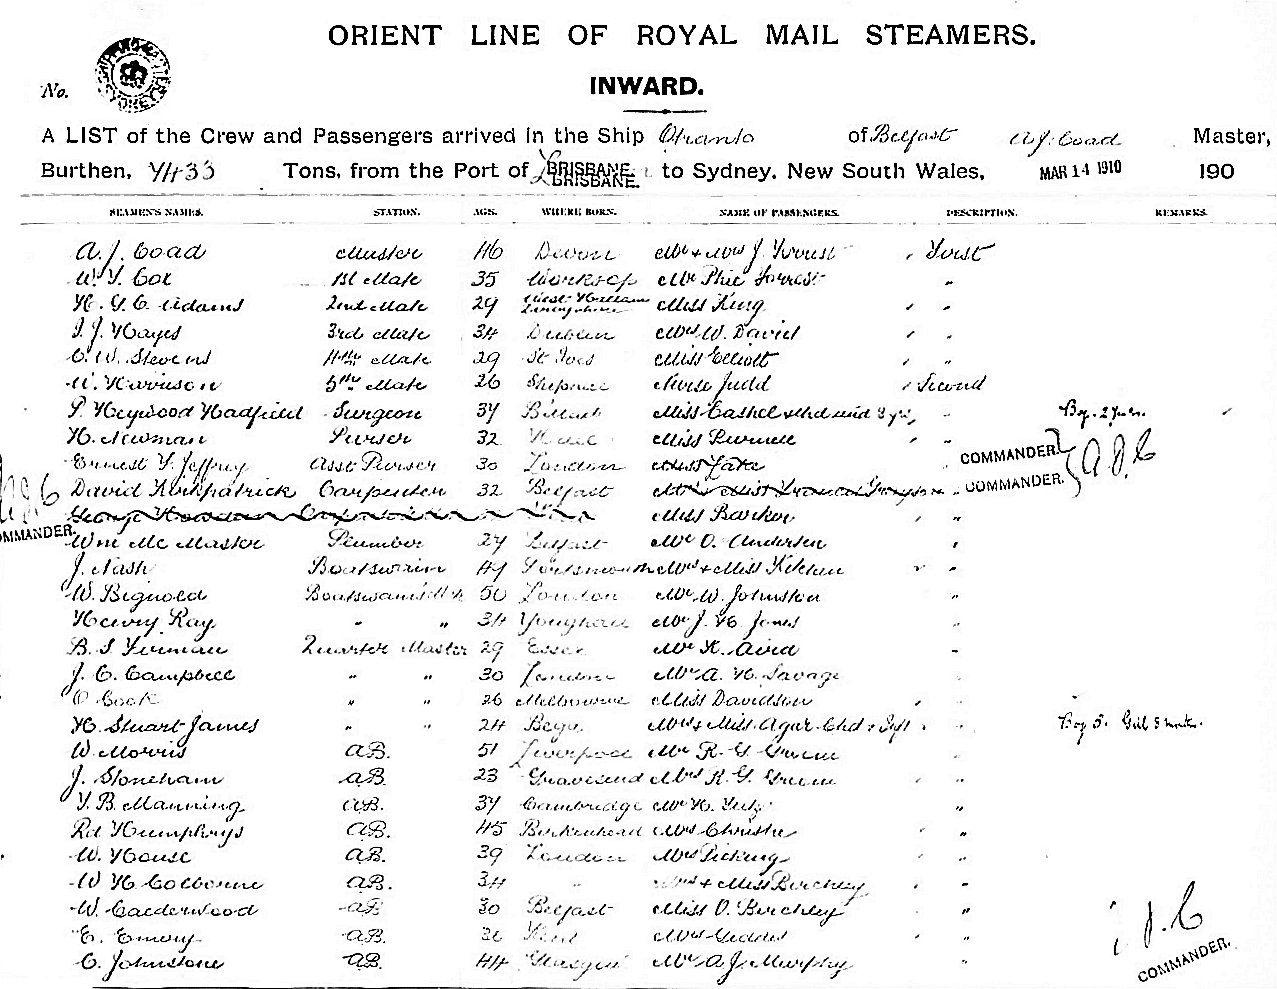 ORIENT LINE OF ROYAL MAIL STEAMERS.
INWARD.
No.
A LIST of the Crew and Passengers arrived in the Ship Otranto of Belfast A. J. Coad Master,
Burthen, 7433 Tons, from the Port of BRISBANE. BRISBANE. to Sydney, New South Wales, MAR 14 1910 190
SEAMEN'S NAMES. STATION. AGE. WHERE BORN. NAME OF PASSENGERS. DESCRIPTION. REMARKS.
A. J. Coad Master 46 Devon Mr & Mrs J. First
Cox 1st Mate 35 Worksop Mr Phil
Adams 2nd Mate 29 Miss King "
Hayes 3rd Mate 34 Dublin Mrs W. David "
Stevens 4th Mate 29 St Ives Miss Elliott "
Harrison 5th Mate 26 Nurse Judd Second
Heywood Hadfield Surgeon 37 Belfast Miss Cashel " Boy. 2 yrs.
H. Newman Purser 32 Miss
Ernest Y. Jeffrey Asst Purser 30 London Miss COMMANDER. A J C
David Kirkpatrick Carpenter 32 Belfast " COMMANDER.
COMMANDER. George Miss Barker "
Wm Mc Master Plumber 27 Belfast Mr O. Andersen "
J. Nash Boatswain 49 Portsmouth Mrs & Miss "
W. Bignold Boatswain's Mte 50 London Mr W. Johnston "
Henry Ray " " 34 Youghal Mr J. H. Jones "
B. S. Quarter Master 29 Essex Mr "
J. C. Campbell " " 30 London Mr A. H. Savage "
Cook " " 26 Melbourne Miss Davidson "
H. Stuart James " " 24 Bega Mrs & Miss Agar Chd & Inft " Boy 5. Girl 8 mths.
W. Morris AB. 51 Liverpool Mr R. G. "
J. Stoneham AB. 23 Gravesend Mrs R. G. "
B. Manning AB. 37 Cambridge Mr H. "
Rd Humphrys AB. 45 Birkenhead Mrs Christie "
W. House AB. 39 London Mrs Picking "
W H Colborne AB. 34 " Mrs & Miss Birchley "
W. Calderwood AB 30 Belfast Miss O. Birchley "
E. Emery AB. Kent Mrs "
C. Johnstone AB. 44 Glasgow Mr A. J. Murphy "
J. C
COMMANDER.